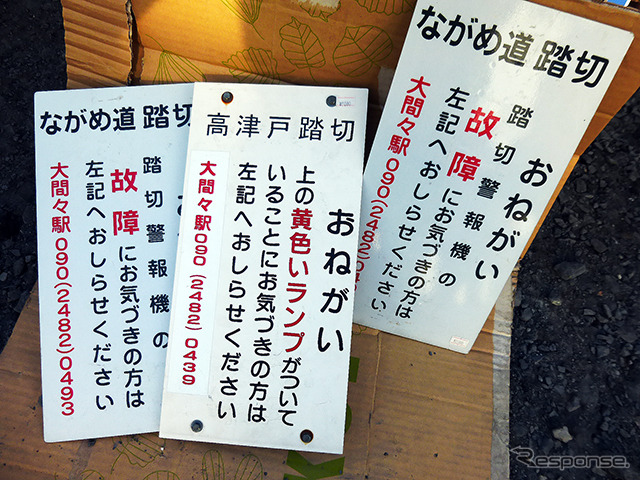 ながめ道踏切
踏切警報機の
故障にお気づきの方は
左記へおしらせください
大間々駅090(2482)0493
高津戸踏切
おねがい
上の黄色いランプがついて
いることにお気づきの方は
左記へおしらせください
大間々駅090(2482)0439
ながめ道踏切
おねがい
踏切警報機の
故障にお気づきの方は
左記へおしらせください
大間々駅090(2482)04
Response.